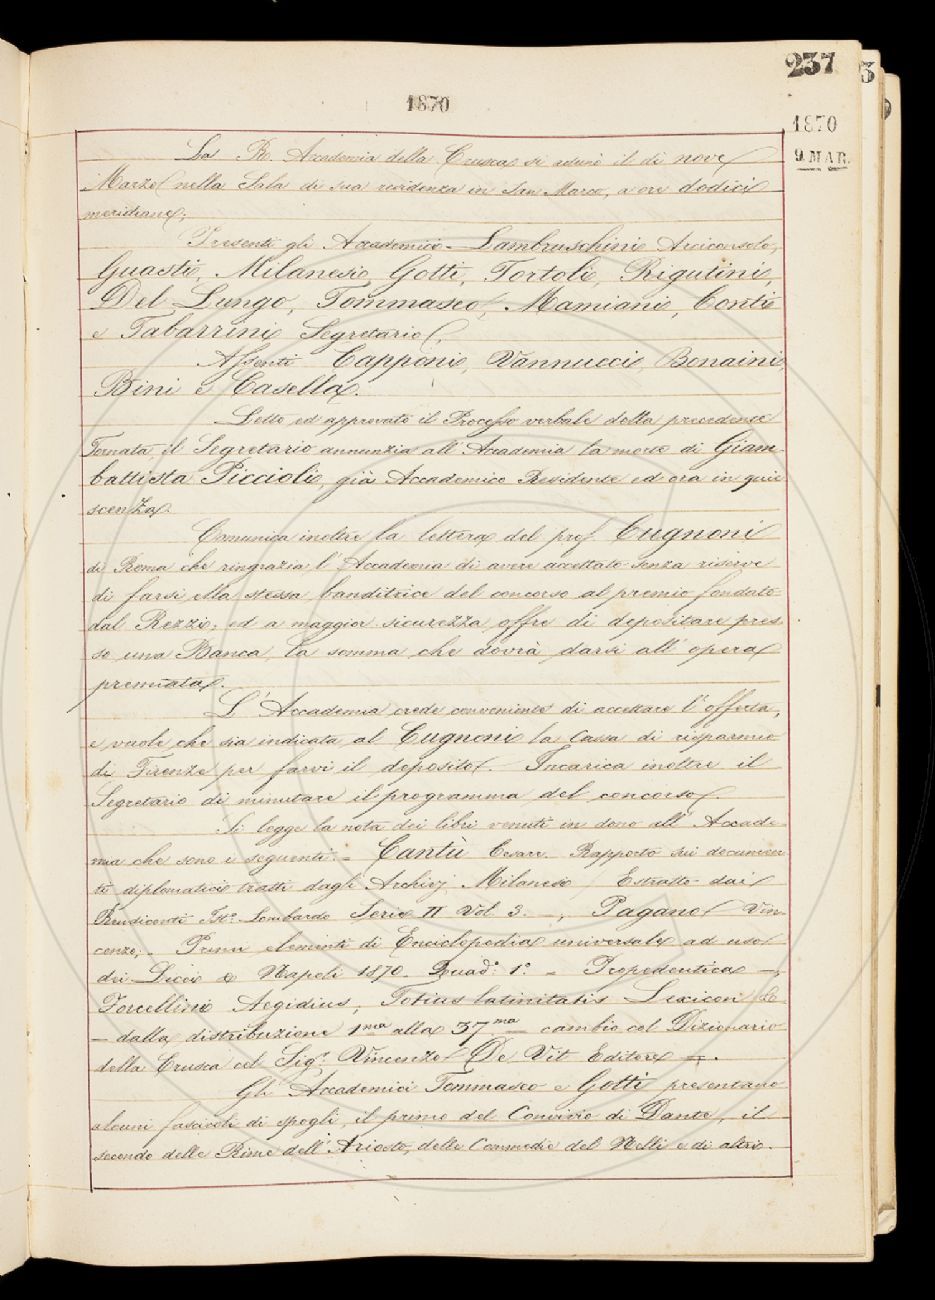 237
3
1870
1870
9. MAR.
La R. Accademia della Crusca si adunò il dì nove
Marzo nella Sala di sua residenza in San Marco, a ore dodici
meridiane;
Presenti gli Accademici - Lambruschini Arciconsolo,
Guasti, Milanesi, Gotti, Tortoli, Rigutini,
Del Lungo, Tommaseo, Mamiani, Conti
e Tabarrini Segretario;
Assenti Capponi, Vannucci, Bonaini,
Bini e Casella.
Letto ed approvato il Processo verbale della precedente
Tornata, il Segretario annunzia all'Accademia la morte di Giam-
battista Piccioli, già Accademico Residente ed ora in quie
scenza.
Comunica inoltre la lettera del prof. Cugnoni
di Roma che ringrazia l'Accademia di avere accettato senza riserve
di farsi ella stessa banditrice del concorso al premio fondato
dal Rezzi; ed a maggior sicurezza offre di depositare pres
so una Banca la somma che dovrà darsi all'opera
premiata.
L'Accademia crede conveniente di accettare l'offerta,
e vuole che sia indicata al Cugnoni la Cassa di risparmio
di Firenze per farvi il deposito. Incarica inoltre il
Segretario di minutare il programma del concorso.
Si legge la nota dei libri venuti in dono all'Accade-
mia che sono i seguenti: - Cantù Cesare. Rapporto sui documen
ti diplomatici tratti dagli Archivj Milanesi / Estratto dai
Rendiconti Ist.º Lombardo Serie II Vol. 3. —, Pagano Vin-
cenzo, - Primi elementi di Enciclopedia universale ad uso
dei Licei & Napoli 1870. Quad.º 1.º - Propedeutica —,
Forcellini Aegidius, Totius latinitatis Lexicon
— dalla distribuzione 1.ma alla 37.ma — cambio col Dizionario
della Crusca col Sig.r Vincenzo De Vit Editore —.
Gli Accademici Tommaseo e Gotti presentano
alcuni fascicoli di spogli, il primo del Convivio di Dante, il
secondo delle Rime dell'Ariosto, delle Commedie del Nelli e di altro.